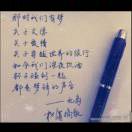 那时我们有梦
关于文学
关于爱情
关于穿越世界的旅行
如今我们深夜饮酒
杯子碰到一起
都是梦破碎的声音
——北岛